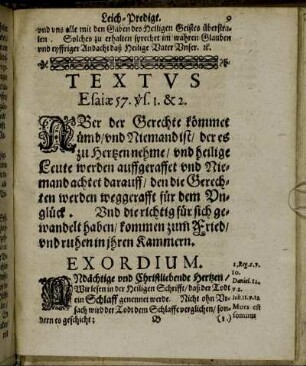 Leich-Predigt. 9
vnd vns alle mit den Gaben des Heiligen Geistes überschüt-
ten. Solches zu erhalten sprechet im wahren Glauben
vnd eyffriger Andacht daß Heilige Vater Vnser. ꝛc.
TEXTVS
Esaiæ 57. ℣s. 1. & 2.
ABer der Gerechte kömmet
ümb/ vnd Niemand ist/ der es
zu Hertzen nehme/ vnd heilige
Leute werden auffgeraffet vnd Nie-
mand achtet darauff/ den die Gerech-
ten werden weggerafft für dem Vn-
glück. Vnd die richtig für sich ge-
wandelt haben/ kommen zum Fried/
vnd ruhen in jhren Kammern.
EXORDIUM.
ANdächtige vnd Christliebende Hertzen/
Wir lesen in der Heiligen Schrifft/ daß der Todt
ein Schlaff genennet werde. Nicht ohn Vr-
sach wird der Todt dem Schlaffe verglichen/ son-
dern es geschicht;
10.
Daniel. 12.
v. 2.
Mors est
somnus
D (1.)